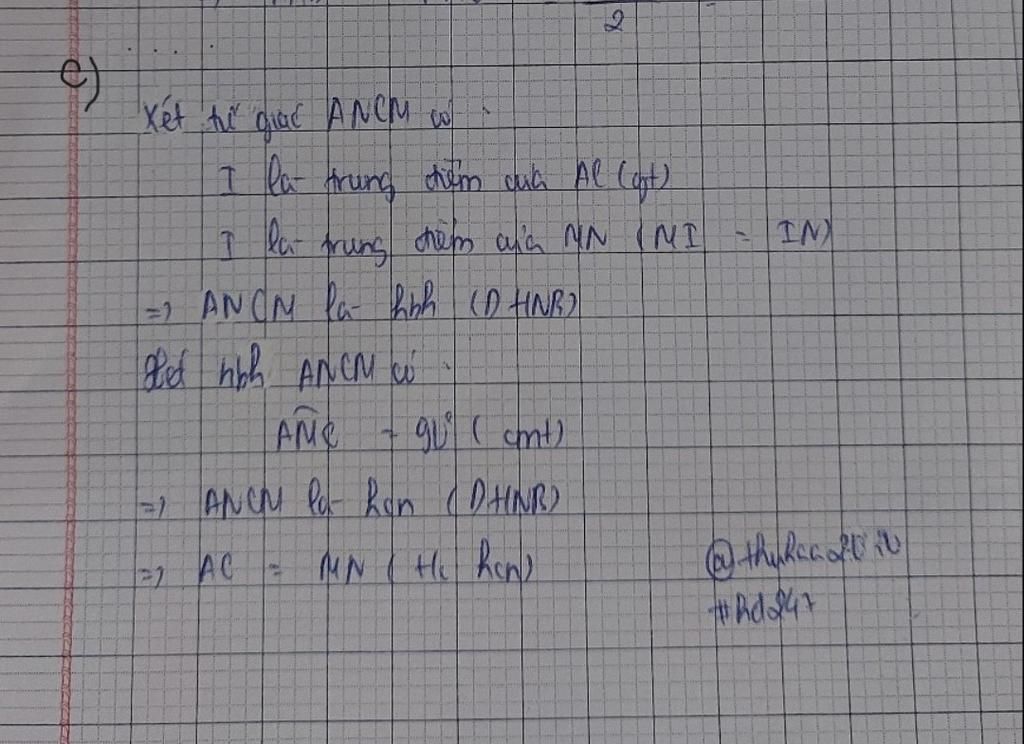 2
. . . .
c)
Xét tứ giác ANCM có
I là trung điểm của AC (gt)
I là trung điểm của MN (MI = IN)
=> ANCM là hbh (DHNB)
Xét hbh ANCM có
AMC = 90° (cmt)
=> ANCM là hcn (DHNB)
=> AC = MN (t/c hcn)
#hd247